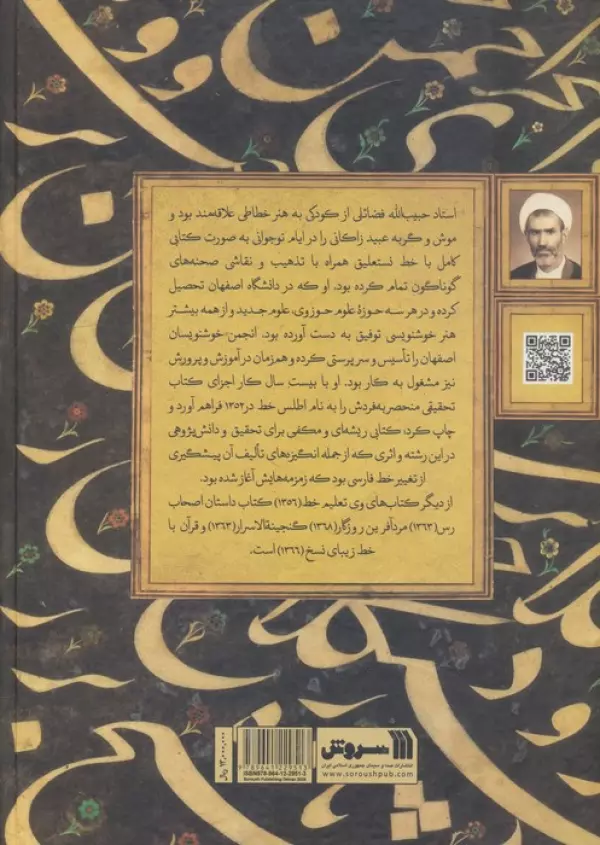 استاد حبیب‌الله فضائلی از کودکی به هنر خطاطی علاقه‌مند بود و
موش و گربه عبید زاکانی را در ایام نوجوانی به صورت کتابی
کامل با خط نستعلیق همراه با تذهیب و نقاشی صحنه‌های
گوناگون تمام کرده بود. او که در دانشگاه اصفهان تحصیل
کرده و در هر سه حوزهٔ علوم حوزوی، علوم جدید و از همه بیشتر
هنر خوشنویسی توفیق به دست آورده بود. انجمن خوشنویسان
اصفهان را تأسیس و سرپرستی کرده و همزمان در آموزش و پرورش
نیز مشغول به کار بود. او با بیست سال کار اجزای کتاب
تحقیقی منحصربه‌فردش را به نام اطلس خط در ۱۳۵۲ فراهم آورد و
چاپ کرد؛ کتابی ریشه‌ای و مکفی برای تحقیق و دانش‌پژوهی
در این رشته و اثری که از جمله انگیزه‌های تألیف آن پیشگیری
از تغییر خط فارسی بود که زمزمه‌هایش آغاز شده بود.
از دیگر کتاب‌های وی تعلیم خط (۱۳۵۶) کتاب داستان اصحاب
رس (۱۳۶۳) مردآفرین روزگار (۱۳۶۸) گنجینةالاسرار (۱۳۶۳) و قرآن با
خط زیبای نسخ (۱۳۶۶) است.
۹۳,۰۰۰,۰۰۰ ریال
9 789641 229513
ISBN978-964-12-2951-3
Soroush Publishing-Tehran 2024
سروش
انتشارات صدا و سیمای جمهوری اسلامی ایران
www.soroushpub.com